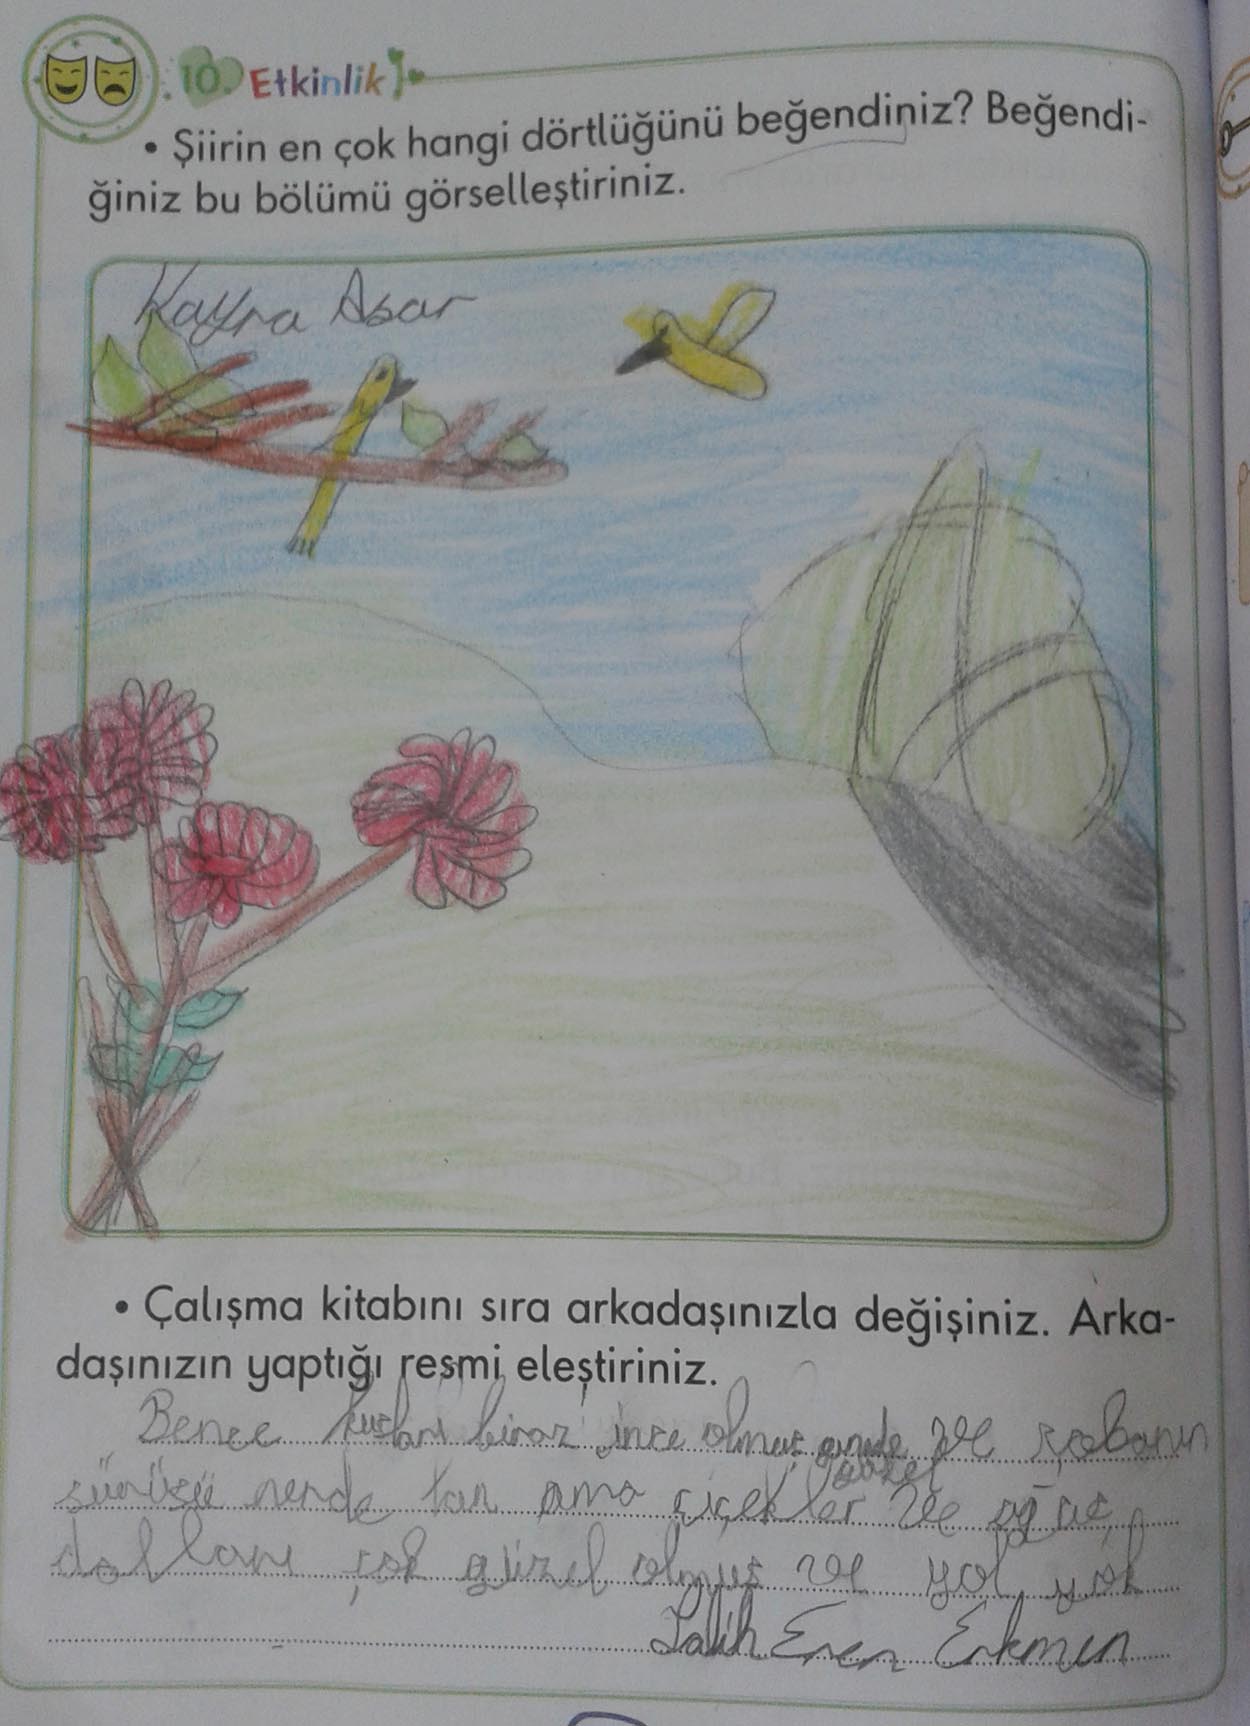 10. Etkinlik
• Şiirin en çok hangi dörtlüğünü beğendiniz? Beğendi-
ğiniz bu bölümü görselleştiriniz.
Kayra Asar
• Çalışma kitabını sıra arkadaşınızla değişiniz. Arka-
daşınızın yaptığı resmi eleştiriniz.
Bence kuşları biraz ince olmuş ve çobanın
güzel
sürüsü nerde ama çiçekler ve ağaç
dalları çok güzel olmuş ve yol yok
Salih Eren Erkmen